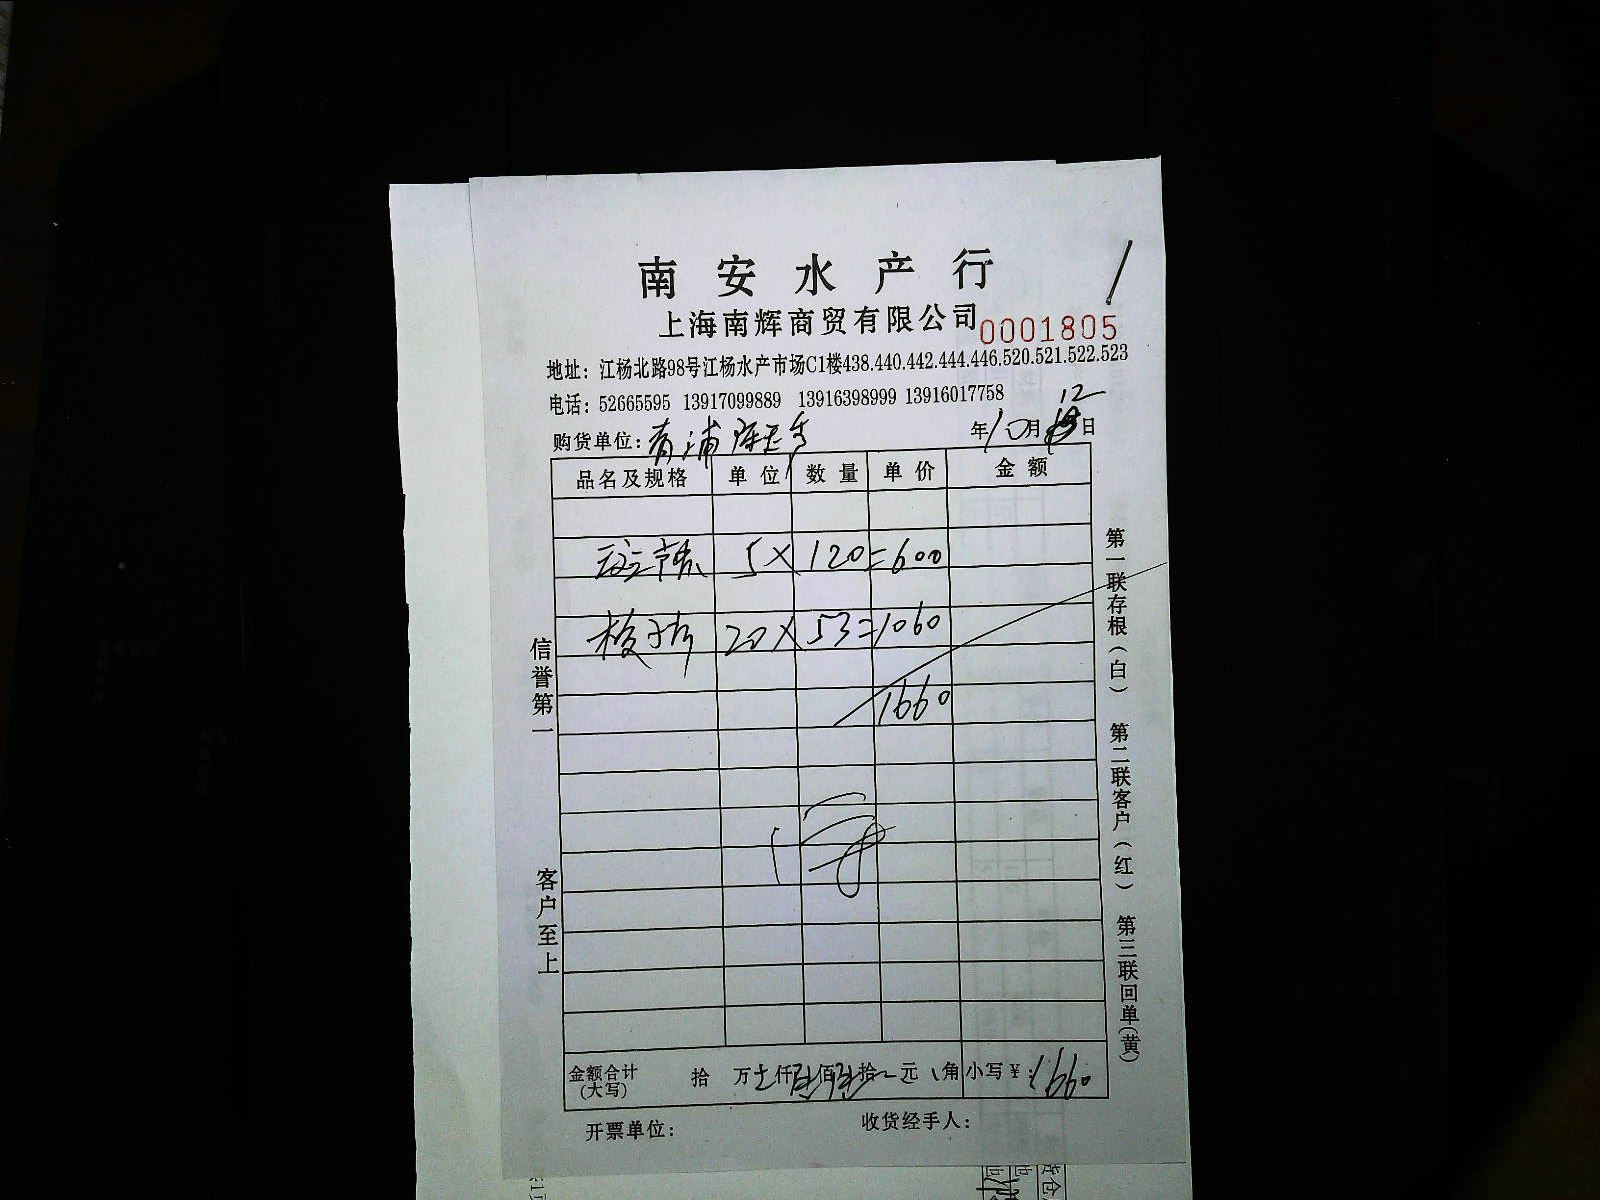 南安水产行
上海南辉商贸有限公司
0001805
地址：江杨北路98号江杨水产市场C1楼438.440.442.444.446.520.521.522.523
电话：52665595 13917099889 13916398999 13916017758
购货单位：青浦
年10月12日
品名及规格 单位 数量 单价 金额
5×120=600
20×53=1060
1660
信誉第一
客户至上
第一联存根（白） 第二联客户（红） 第三联回单（黄）
金额合计（大写） 拾 万 仟 佰 拾 元 角 小写￥：1660
开票单位： 收货经手人：